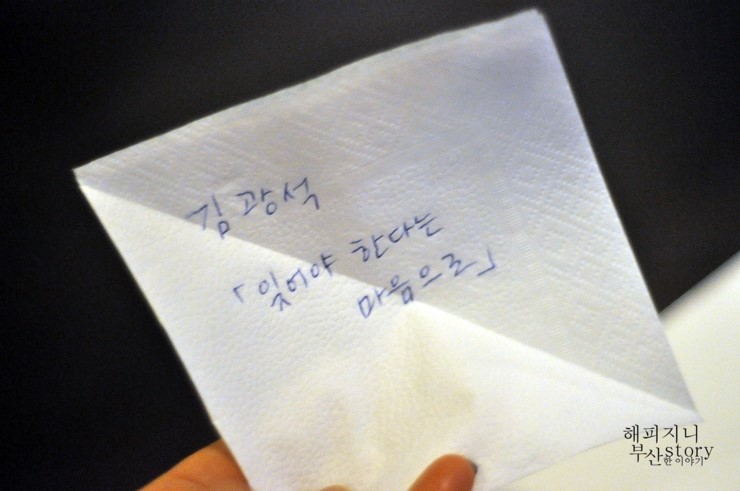 김광석
「잊어야 한다는
마음으로」
해피지니
부산story
한이야기